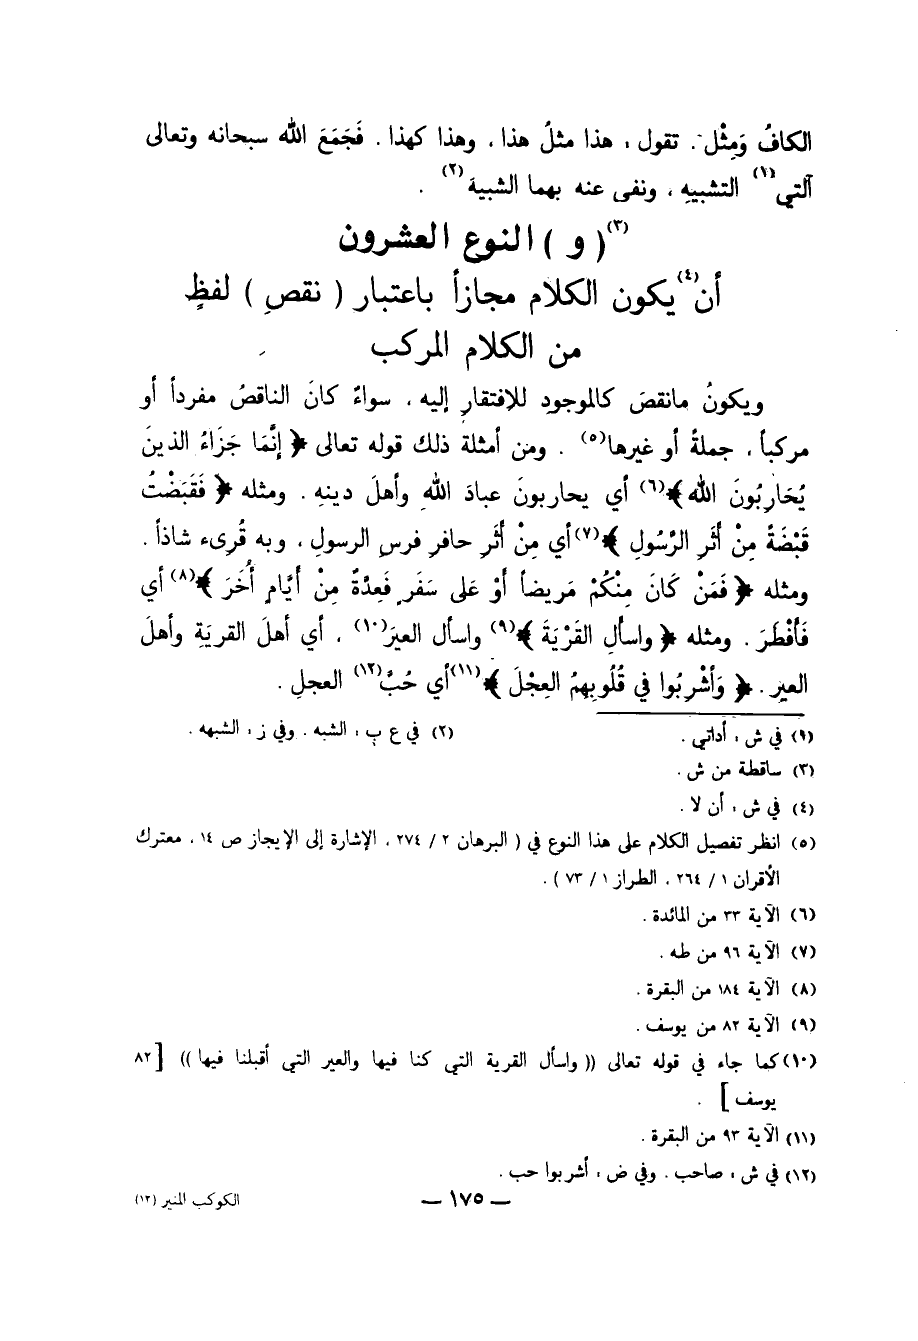 الكافُ وَمِثْل . تقول : هذا مثلُ هذا ، وهذا كهذا . فَجَمَعَ اللّٰه سبحانه وتعالى
آلتي(١) التشبيهِ ، ونفى عنه بهما الشبيهَ(٢) .
(٣)( و ) النوع العشرون
أن(٤) يكون الكلام مجازاً باعتبار ( نقصِ ) لفظٍ
من الكلام المركب
ويكونُ مانقصَ كالموجودِ للإفتقارِ إليه ، سواءً كانَ الناقصُ مفرداً أو
مركباً ، جملةً أو غيرها(٥) . ومن أمثلة ذلك قوله تعالى ﴿ إنَّمَا جَزَاءُ الذينَ
يُحَارِبُونَ اللّٰه ﴾(٦) أي يحاربونَ عبادَ اللّٰهِ وأهلَ دينهِ . ومثله ﴿ فَقَبَضْتُ
قَبْضَةً مِنْ أَثَرِ الرَّسُولِ ﴾(٧) أي مِنْ أثَرِ حافرِ فرسِ الرسولِ ، وبه قُرِىء شاذاً .
ومثله ﴿ فَمَنْ كَانَ مِنْكُمْ مَريضاً أوْ عَلى سَفَرٍ فَعِدْةٌ مِنْ أيَّامٍ أُخَرَ ﴾(٨) أي
فَأفْطَرَ . ومثله ﴿ واسألِ القَرْيَةَ ﴾(٩) واسأل العيرَ(١٠) ، أي أهلَ القريَةِ وأهلَ
العيرِ . ﴿ وَأشْرِبُوا في قُلُوبِهِمُ العِجْلَ ﴾(١١) أي حُبَّ(١٢) العجلِ .
(١) في ش : أداتي . (٢) في ع ب : الشبه . وفي ز : الشبهه .
(٣) ساقطة من ش .
(٤) في ش : أن لا .
(٥) انظر تفصيل الكلام على هذا النوع في ( البرهان ٢ / ٢٧٤ ، الإشارة إلى الإيجاز ص ١٤ ، معترك
الأقران ١ / ٢٦٤ ، الطراز ١ / ٧٣ ) .
(٦) الآية ٣٣ من المائدة .
(٧) الآية ٩٦ من طه .
(٨) الآية ١٨٤ من البقرة .
(٩) الآية ٨٢ من يوسف .
(١٠) كما جاء في قوله تعالى (( واسأل القرية التي كنا فيها والعير التي أقبلنا فيها )) [ ٨٢
يوسف ] .
(١١) الآية ٩٣ من البقرة .
(١٢) في ش : صاحب . وفي ض : أشربوا حب .
— ١٧٥ — الكوكب المنير (١٢)